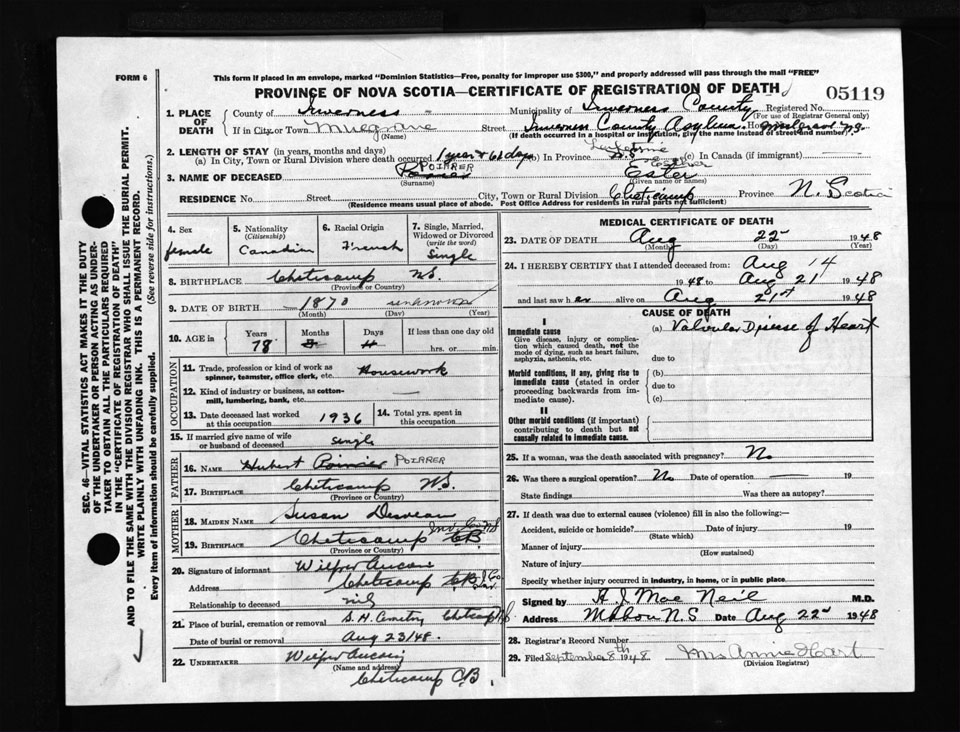 FORM 6
This form if placed in an envelope, marked "Dominion Statistics—Free, penalty for improper use $300," and properly addressed will pass through the mail "FREE"
PROVINCE OF NOVA SCOTIA—CERTIFICATE OF REGISTRATION OF DEATH
05119
SEC. 46—VITAL STATISTICS ACT MAKES IT THE DUTY
OF THE UNDERTAKER OR PERSON ACTING AS UNDER-
TAKER TO OBTAIN ALL THE PARTICULARS REQUIRED
IN THE "CERTIFICATE OF REGISTRATION OF DEATH"
AND TO FILE THE SAME WITH THE DIVISION REGISTRAR WHO SHALL ISSUE THE BURIAL PERMIT.
WRITE PLAINLY WITH UNFADING INK. THIS IS A PERMANENT RECORD.
Every item of information should be carefully supplied. (See reverse side for instructions.)
1. PLACE OF DEATH
County of Inverness
Municipality of Inverness County Registered No.
(For use of Registrar General only)
If in City or Town Mulgrave
(Name)
Street Inverness County Asylum
(If death occurred in a hospital or institution, give the name instead of street and number)
2. LENGTH OF STAY (in years, months and days)
(a) In City, Town or Rural Division where death occurred 1 year & 61 days (b) In Province N.S. (c) In Canada (if immigrant)
3. NAME OF DECEASED POIRRER
(Surname)
Esther
Ester
(Given name or names)
RESIDENCE No. Street City, Town or Rural Division Cheticamp Province N. Scotia
(Residence means usual place of abode. Post Office Address for residents in rural parts not sufficient)
4. Sex
female
5. Nationality
(Citizenship)
Canadian
6. Racial Origin
French
7. Single, Married,
Widowed or Divorced
(write the word)
Single
8. BIRTHPLACE Cheticamp N.S.
(Province or Country)
9. DATE OF BIRTH 1870 unknown
(Month) (Day) (Year)
10. AGE in
Years Months Days If less than one day old
78
hrs. or min.
OCCUPATION
11. Trade, profession or kind of work as
spinner, teamster, office clerk, etc. Housework
12. Kind of industry or business, as cotton-
mill, lumbering, bank, etc.
13. Date deceased last worked
at this occupation 1936
14. Total yrs. spent in
this occupation
15. If married give name of wife
or husband of deceased single
FATHER
16. NAME Hubert Poirier POIRRER
17. BIRTHPLACE Cheticamp N.S.
(Province or Country)
MOTHER
18. MAIDEN NAME Susan Desveau
Inv. Co. N.S
19. BIRTHPLACE Cheticamp C.B.
(Province or Country)
20. Signature of informant Wilfred Aucoin
Address Cheticamp C.B.
Relationship to deceased nil
21. Place of burial, cremation or removal S.H. Cemetry Cheticamp N.S.
Date of burial or removal Aug 23/48.
22. UNDERTAKER Wilfred Aucoin
(Name and address)
Cheticamp C.B
MEDICAL CERTIFICATE OF DEATH
23. DATE OF DEATH Aug 22 1948
(Month) (Day) (Year)
24. I HEREBY CERTIFY that I attended deceased from: Aug 14
1948 to Aug 21 1948
and last saw her alive on Aug 21st 1948
CAUSE OF DEATH
I
Immediate cause
Give disease, injury or complica-
tion which caused death, not the
mode of dying, such as heart failure,
asphyxia, asthenia, etc.
(a) Valvular Disease of Heart
due to
Morbid conditions, if any, giving rise to
immediate cause (stated in order
proceeding backwards from im-
mediate cause).
(b)
due to
(c)
II
Other morbid conditions (if important)
contributing to death but not
causally related to immediate cause.
25. If a woman, was the death associated with pregnancy? No
26. Was there a surgical operation? No Date of operation 19
State findings Was there an autopsy?
27. If death was due to external causes (violence) fill in also the following:—
Accident, suicide or homicide? Date of injury 19
(State which)
Manner of injury
(How sustained)
Nature of injury
Specify whether injury occurred in industry, in home, or in public place
Signed by A J Mac Neil M.D.
Address Mabou N.S Date Aug 22nd 1948
28. Registrar's Record Number
29. Filed September 8th 1948 Mrs Annie Hart
(Division Registrar)